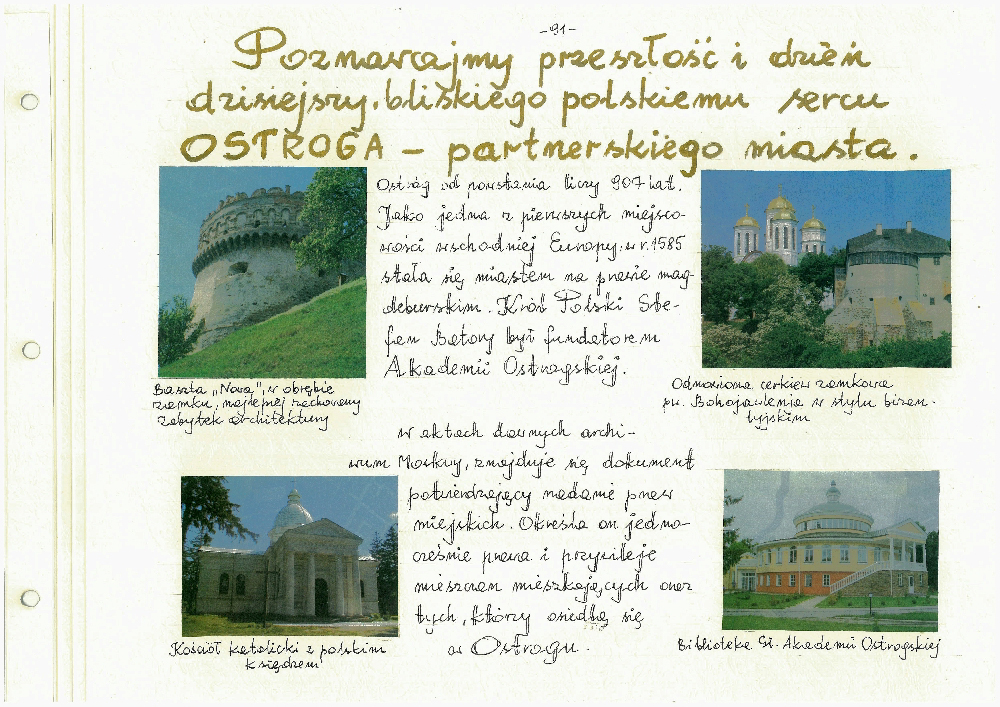 -91-
Poznawajmy przeszłość i dzień
dzisiejszy, bliskiego polskiemu sercu
OSTROGA - partnerskiego miasta.
Ostróg od powstania liczy 907 lat.
Jako jedna z pierwszych miejsco-
wości wschodniej Europy, w r. 1585
stała się miastem na prawie mag-
deburskim. Król Polski Ste-
fan Batory był fundatorem
Akademii Ostrogskiej.
Baszta „Nowa", w obrębie
zamku, najlepiej zachowany
zabytek architektury
Odnowiona cerkiew zamkowa
pw. Bohojawlenia w stylu bizan-
tyjskim
w aktach dawnych archi-
wum Moskwy, znajduje się dokument
potwierdzający nadanie praw
miejskich. Określa on jedno-
cześnie prawa i przywileje
mieszczan mieszkających oraz
tych, którzy osiedlą się
w Ostrogu.
Kościół katolicki z polskim
księdzem
Biblioteka Gł. Akademii Ostrogskiej